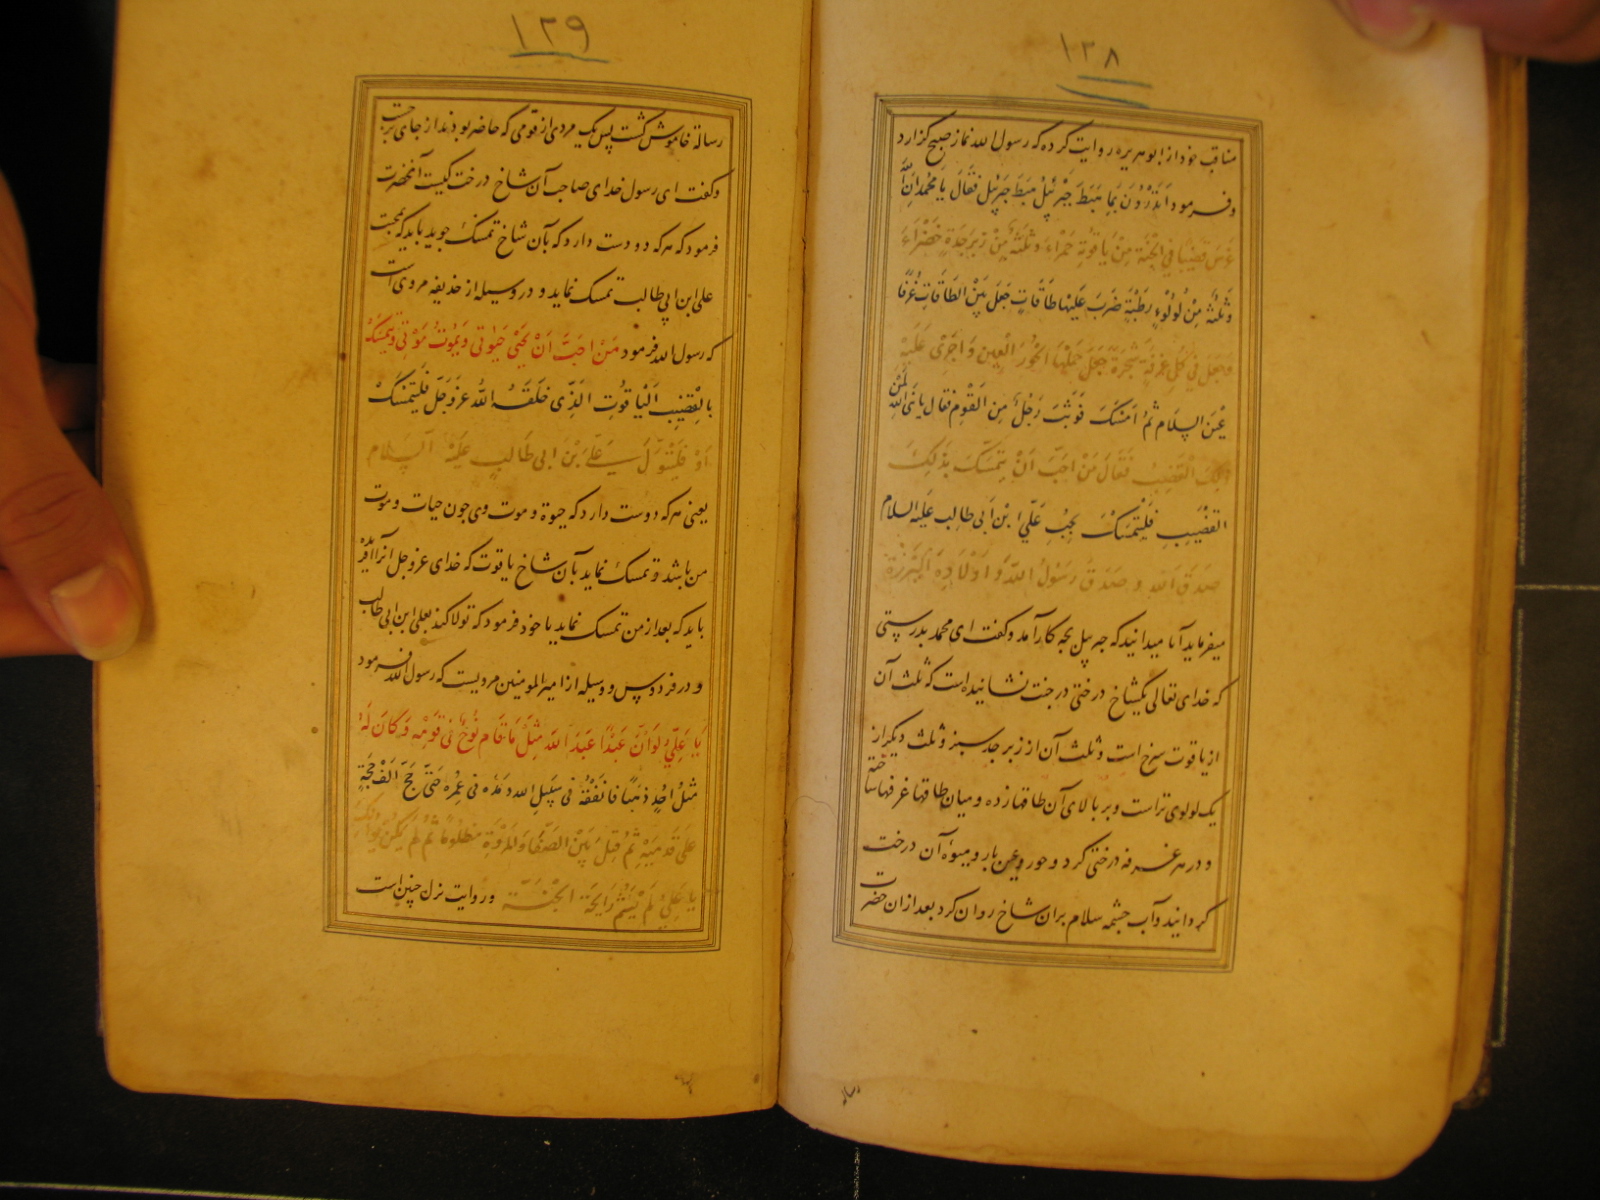 ١٣٨
مناقب خود از ابو هریره روایت کرده که رسول الله نماز صبح گزارد
و فرمود اتدرون بما هبط جبرئیل هبط جبرئیل فقال یا محمد ان الله
غرس قضیبا فی الجنة من یاقوتة حمراء و ثلثه من زبرجدة خضراء
و ثلثه من لؤلؤ رطبة ضرب علیها طاقات جعل بین الطاقات غرفا
و جعل فی کل غرفة شجرة جعل حملها الحور العین و اجری علیه
عین السلام ثم امسک فوثب رجل من القوم فقال یا نبی الله لمن
ذلک القضیب فقال من احب ان یتمسک بذلک
القضیب فلیتمسک بحب علی ابن ابی طالب علیه السلام
صدق الله و صدق رسول الله و اولاده البررة
میفرماید آیا میدانید که جبرئیل بچه کار آمد و گفت ای محمد بدرستی
که خدای تعالی یکشاخ درختی در جنت نشانیده است که ثلث آن
از یاقوت سرخ است و ثلث آن از زبرجد سبز و ثلث دیگر از
یک لولوی تر است و بر بالای آن طاقها زده و میان طاقها غرفها ساخته
و در هر غرفه درختی کرد و حور و عین بار و میوه آن درخت
گردانید و آب چشمه سلام بران شاخ روان کرد بعد ازان حضرت
رساله
١٣٩
رسالة خاموش گشت پس یک مردی از قومی که حاضر بودند از جای برجست
و گفت ای رسول خدای صاحب آن شاخ درخت کیست آنحضرت
فرمود که هر که دوست دارد که بآن شاخ تمسک جوید باید که بمحبت
علی ابن ابی طالب تمسک نماید و در وسیله از حذیفه مروی است
که رسول الله فرمود من احب ان یحیی حیوتی و یموت موتی و یتمسک
بالقضیب الیاقوت الذی خلقه الله عز و جل فلیتمسک
او فلیتول علی بن ابی طالب علیه السلام
یعنی هر که دوست دارد که حیوة و موت وی چون حیات و موت
من باشد و تمسک نماید بآن شاخ یاقوت که خدای عز و جل آنرا آفریده
باید که بعد از من تمسک نماید یا خود فرمود که تولا کند بعلی ابن ابی طالب
و در فردوس و وسیله از امیر المومنین مرویست که رسول الله فرمود
یا علی لو ان عبدا عبد الله مثل ما قام نوح فی قومه و کان له
مثل احد ذهبا فانفقه فی سبیل الله و مد فی عمره حتی حج الف حجة
علی قدمیه ثم قتل بین الصفا و المروة مظلوما ثم لم یکن یوالیک
یا علی لم یشم رایحة الجنة و روایت نزل چنین است